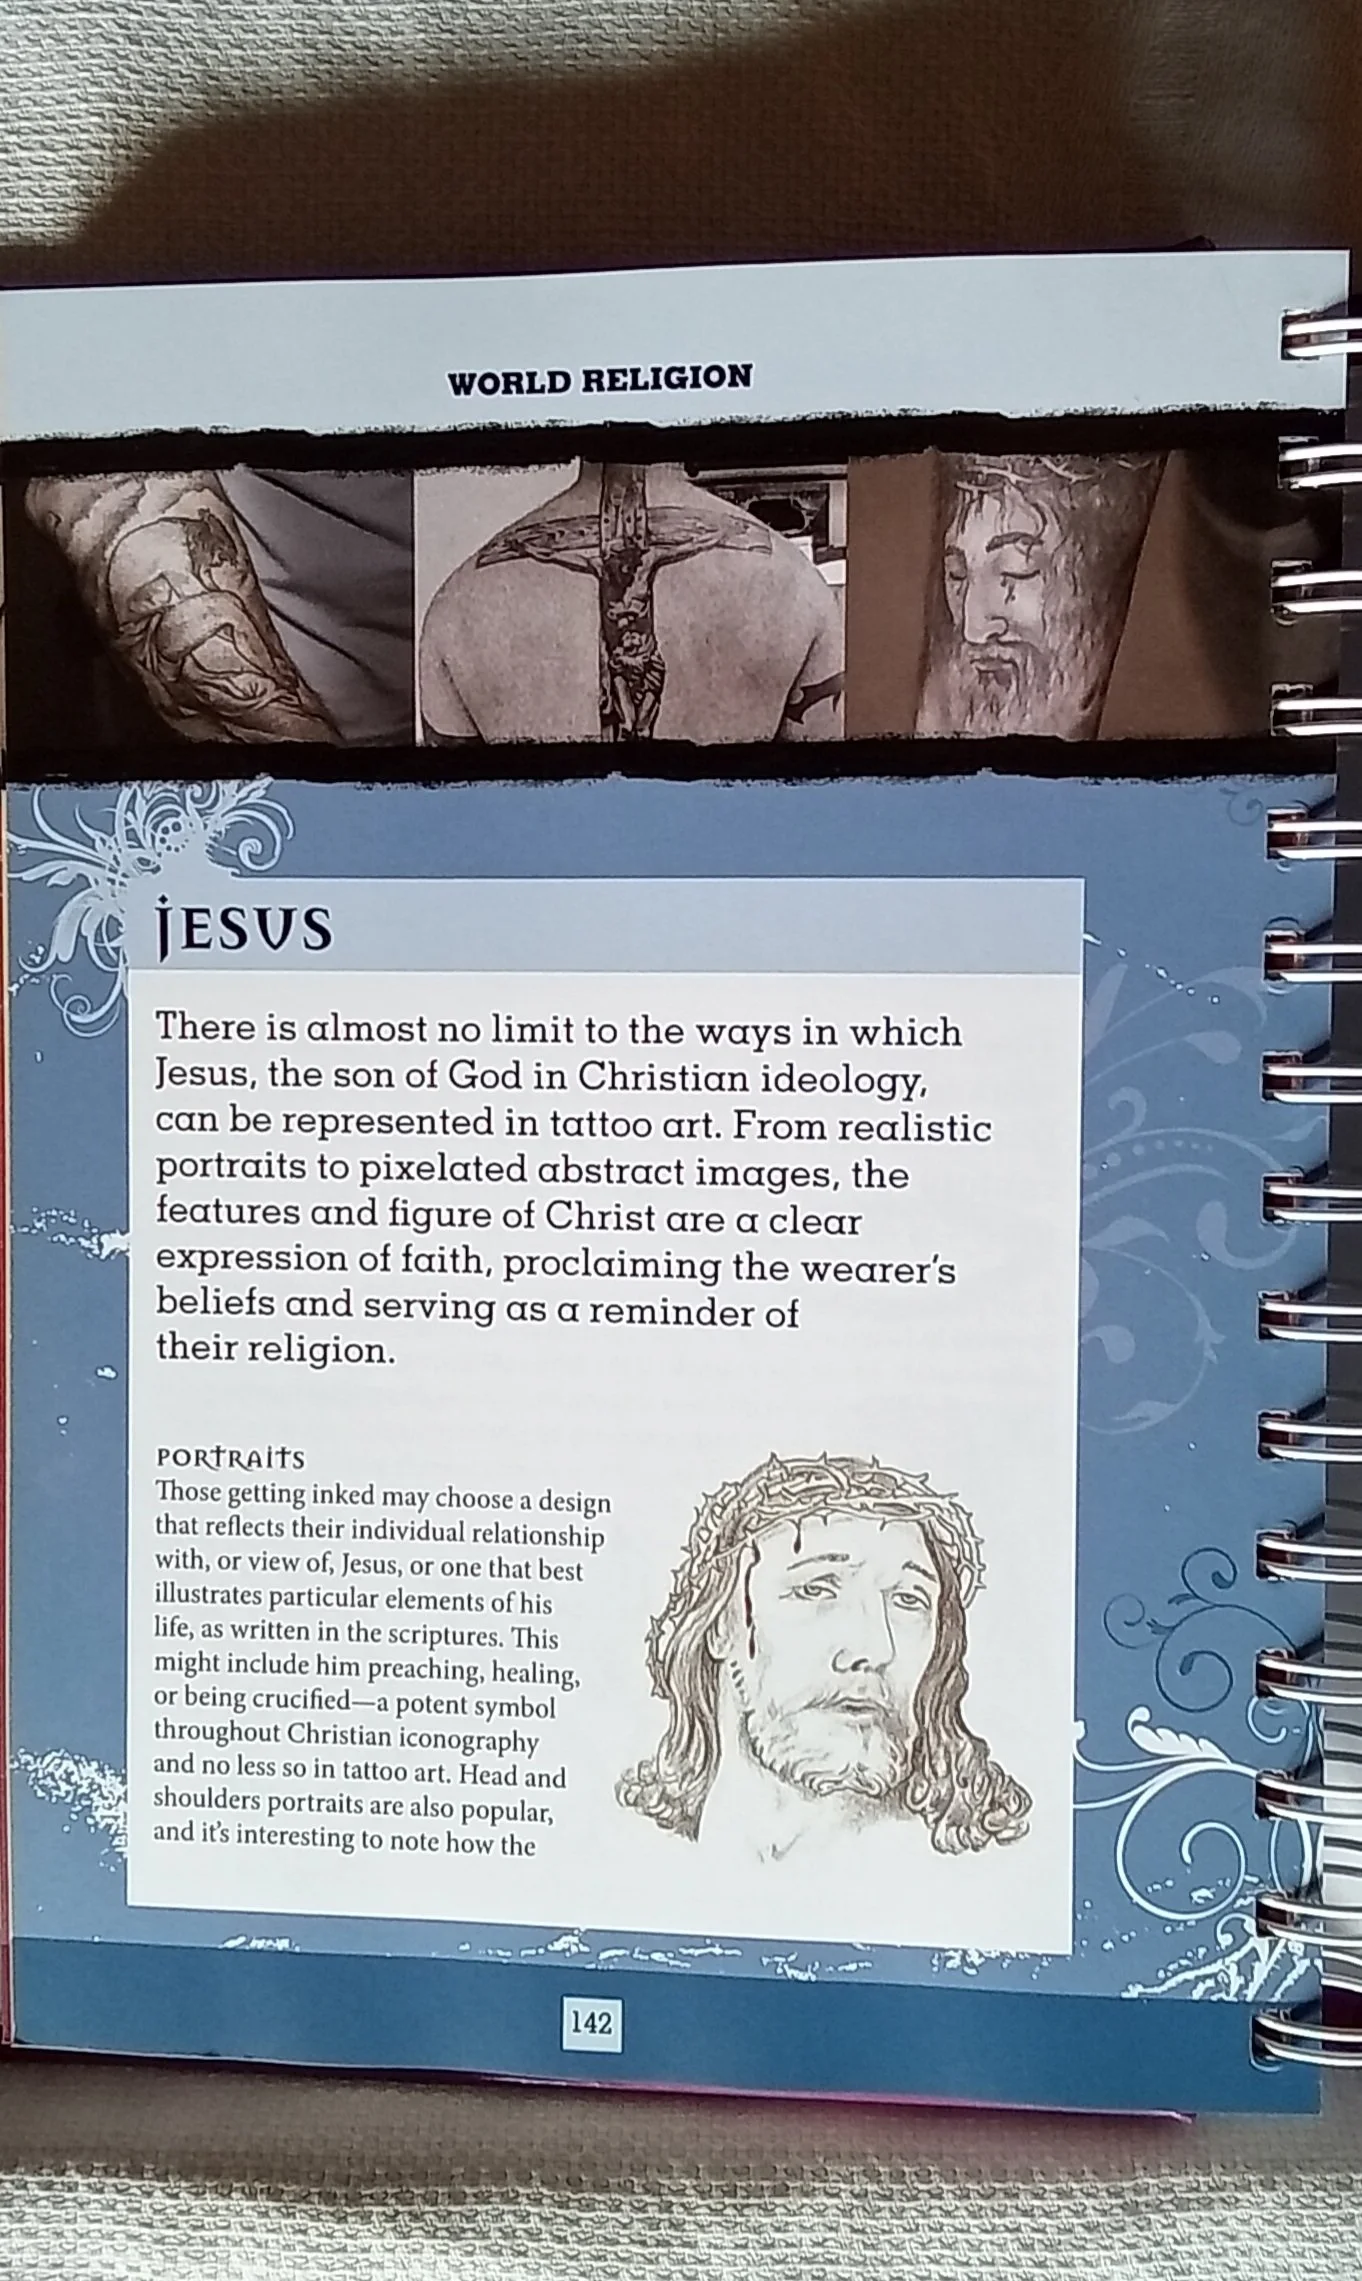 WORLD RELIGION
JESUS
There is almost no limit to the ways in which
Jesus, the son of God in Christian ideology,
can be represented in tattoo art. From realistic
portraits to pixelated abstract images, the
features and figure of Christ are a clear
expression of faith, proclaiming the wearer's
beliefs and serving as a reminder of
their religion.
PORTRAITS
Those getting inked may choose a design
that reflects their individual relationship
with, or view of, Jesus, or one that best
illustrates particular elements of his
life, as written in the scriptures. This
might include him preaching, healing,
or being crucified—a potent symbol
throughout Christian iconography
and no less so in tattoo art. Head and
shoulders portraits are also popular,
and it's interesting to note how the
142